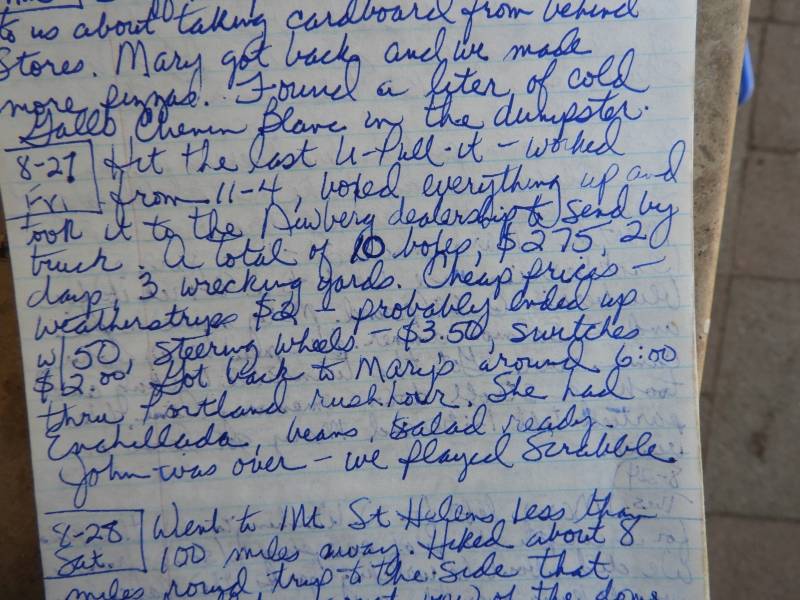 to us about taking cardboard from behind
Stores. Mary got back and we made
more pizzas. Found a liter of cold
Gallo Chenin Blanc in the dumpster.
8-27 Fri. Hit the last U-Pull-it - worked
from 11-4, boxed everything up and
took it to the Newberg dealership to send by
truck. A total of 10 boxes, $275, 2
days, 3 wrecking yards. Cheap prices -
weatherstrips $2 - probably ended up
w/ 50, steering wheels - $3.50, switches
$2.00. Got back to Mary's around 6:00
thru Portland rush hour. She had
Enchillada, beans, salad ready.
John was over - we played Scrabble.
8-28 Sat. Went to Mt St Helens, less than
100 miles away. Hiked about 8
miles round trip to the side that
view of the dome